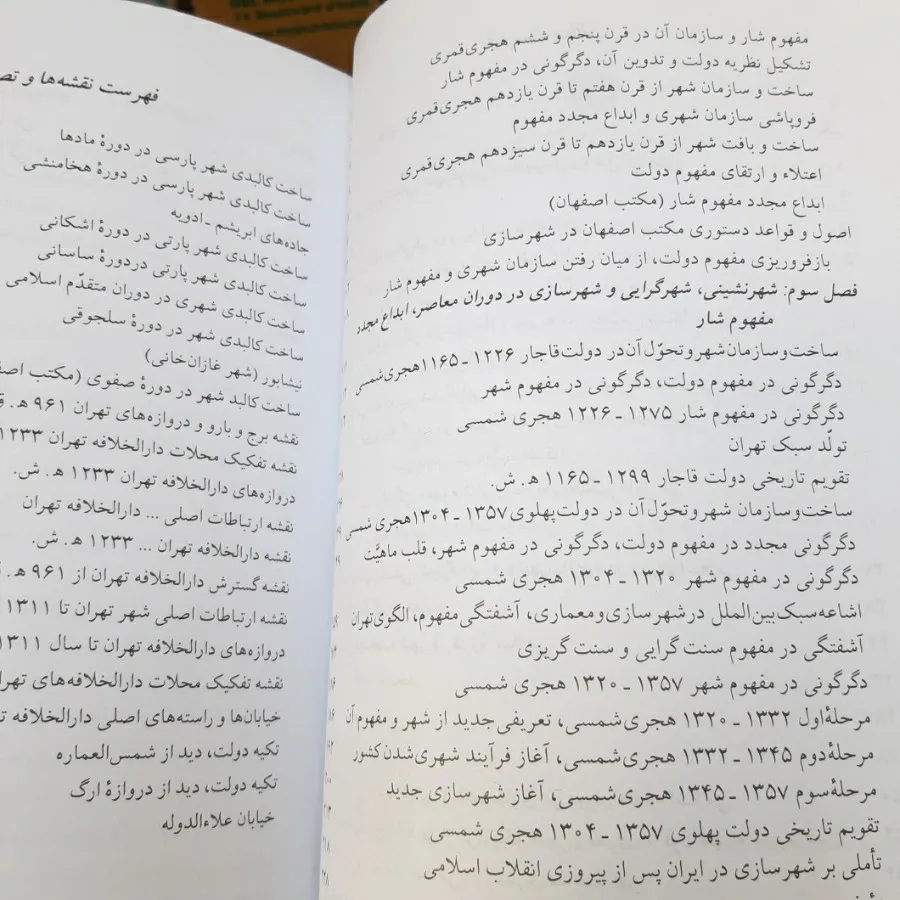 مفهوم شار و سازمان آن در قرن پنجم و ششم هجری‌قمری
تشکیل نظریه دولت و تدوین آن، دگرگونی در مفهوم شار
ساخت و سازمان شهر از قرن هفتم تا قرن یازدهم هجری‌قمری
فروپاشی سازمان شهری و ابداع مجدد مفهوم
ساخت و بافت شهر از قرن یازدهم تا قرن سیزدهم هجری‌قمری
اعتلاء و ارتقای مفهوم دولت
ابداع مجدد مفهوم شار (مکتب اصفهان)
اصول و قواعد دستوری مکتب اصفهان در شهرسازی
بازفروریزی مفهوم دولت، از میان رفتن سازمان شهری و مفهوم شار
فصل سوم: شهرنشینی، شهرگرایی و شهرسازی در دوران معاصر، ابداع مجدد
مفهوم شار
ساخت و سازمان شهر و تحوّل آن در دولت قاجار ۱۲۲۶ ـ ۱۱۶۵ هجری شمسی
دگرگونی در مفهوم دولت، دگرگونی در مفهوم شهر
دگرگونی در مفهوم شار ۱۲۷۵ ـ ۱۲۲۶ هجری شمسی
تولّد سبک تهران
تقویم تاریخی دولت قاجار ۱۲۹۹ ـ ۱۱۶۵ ه‍ . ش.
ساخت و سازمان شهر و تحوّل آن در دولت پهلوی ۱۳۵۷ ـ ۱۳۰۴ هجری شمسی
دگرگونی مجدد در مفهوم دولت، دگرگونی در مفهوم شهر، قلب ماهیّت
دگرگونی در مفهوم شهر ۱۳۲۰ ـ ۱۳۰۴ هجری شمسی
اشاعه سبک بین‌الملل در شهرسازی و معماری، آشفتگی مفهوم، الگوی تهران
آشفتگی در مفهوم سنت گرایی و سنت گریزی
دگرگونی در مفهوم شهر ۱۳۵۷ ـ ۱۳۲۰ هجری شمسی
مرحلهٔ اول ۱۳۳۲ ـ ۱۳۲۰ هجری‌شمسی، تعریفی جدید از شهر و مفهوم آن
مرحلهٔ دوم ۱۳۴۵ ـ ۱۳۳۲ هجری‌شمسی، آغاز فرآیند شهری‌شدن کشور
مرحلهٔ سوم ۱۳۵۷ ـ ۱۳۴۵ هجری‌شمسی، آغاز شهرسازی جدید
تقویم تاریخی دولت پهلوی ۱۳۵۷ ـ ۱۳۰۴ هجری شمسی
تأملی بر شهرسازی در ایران پس از پیروزی انقلاب اسلامی
فهرست نقشه‌ها و تص
ساخت کالبدی شهر پارسی در دورهٔ مادها
ساخت کالبدی شهر پارسی در دورهٔ هخامنشی
جاده‌های ابریشم ـ ادویه
ساخت کالبدی شهر پارتی در دورهٔ اشکانی
ساخت کالبدی شهر پارتی در دورهٔ ساسانی
ساخت کالبدی شهری در دوران متقدّم اسلامی
ساخت کالبدی شهر در دورهٔ سلجوقی
نیشابور (شهر غازان‌خانی)
ساخت کالبد شهر در دورهٔ صفوی (مکتب اصف
نقشه برج و بارو و دروازه‌های تهران ۹۶۱ ه‍ . ق
نقشه تفکیک محلات دارالخلافه تهران ۱۲۳۳
دروازه‌های دارالخلافه تهران ۱۲۳۳ ه‍ . ش.
نقشه ارتباطات اصلی ... دارالخلافه تهران
نقشه دارالخلافه تهران ... ۱۲۳۳ ه‍ . ش.
نقشه گسترش دارالخلافه تهران از ۹۶۱ ه‍ .
نقشه ارتباطات اصلی شهر تهران تا ۱۳۱۱
دروازه‌های دارالخلافه تهران تا سال ۱۳۱۱
نقشه تفکیک محلات دارالخلافه‌های تهرا
خیابان‌ها و راسته‌های اصلی دارالخلافه ت
تکیه دولت، دید از شمس‌العماره
تکیه دولت، دید از دروازهٔ ارگ
خیابان علاءالدوله